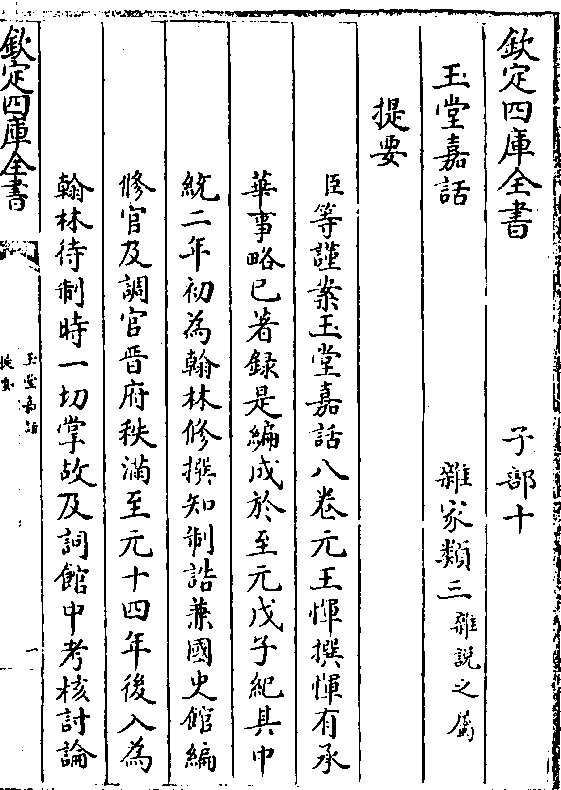 欽定四庫全書 子部十
玉堂嘉話 雜家類三 雜說之屬
提要
臣等謹案玉堂嘉話八卷元王惲撰惲有承
華事略已著録是編成於至元戊子紀其中
統二年初為翰林修撰知制誥兼國史館編
修官及調官晉府秩滿至元十四年後入為
翰林待制時一切掌故及詞館中考核討論
欽定四庫全書
玉堂嘉話
提要
一